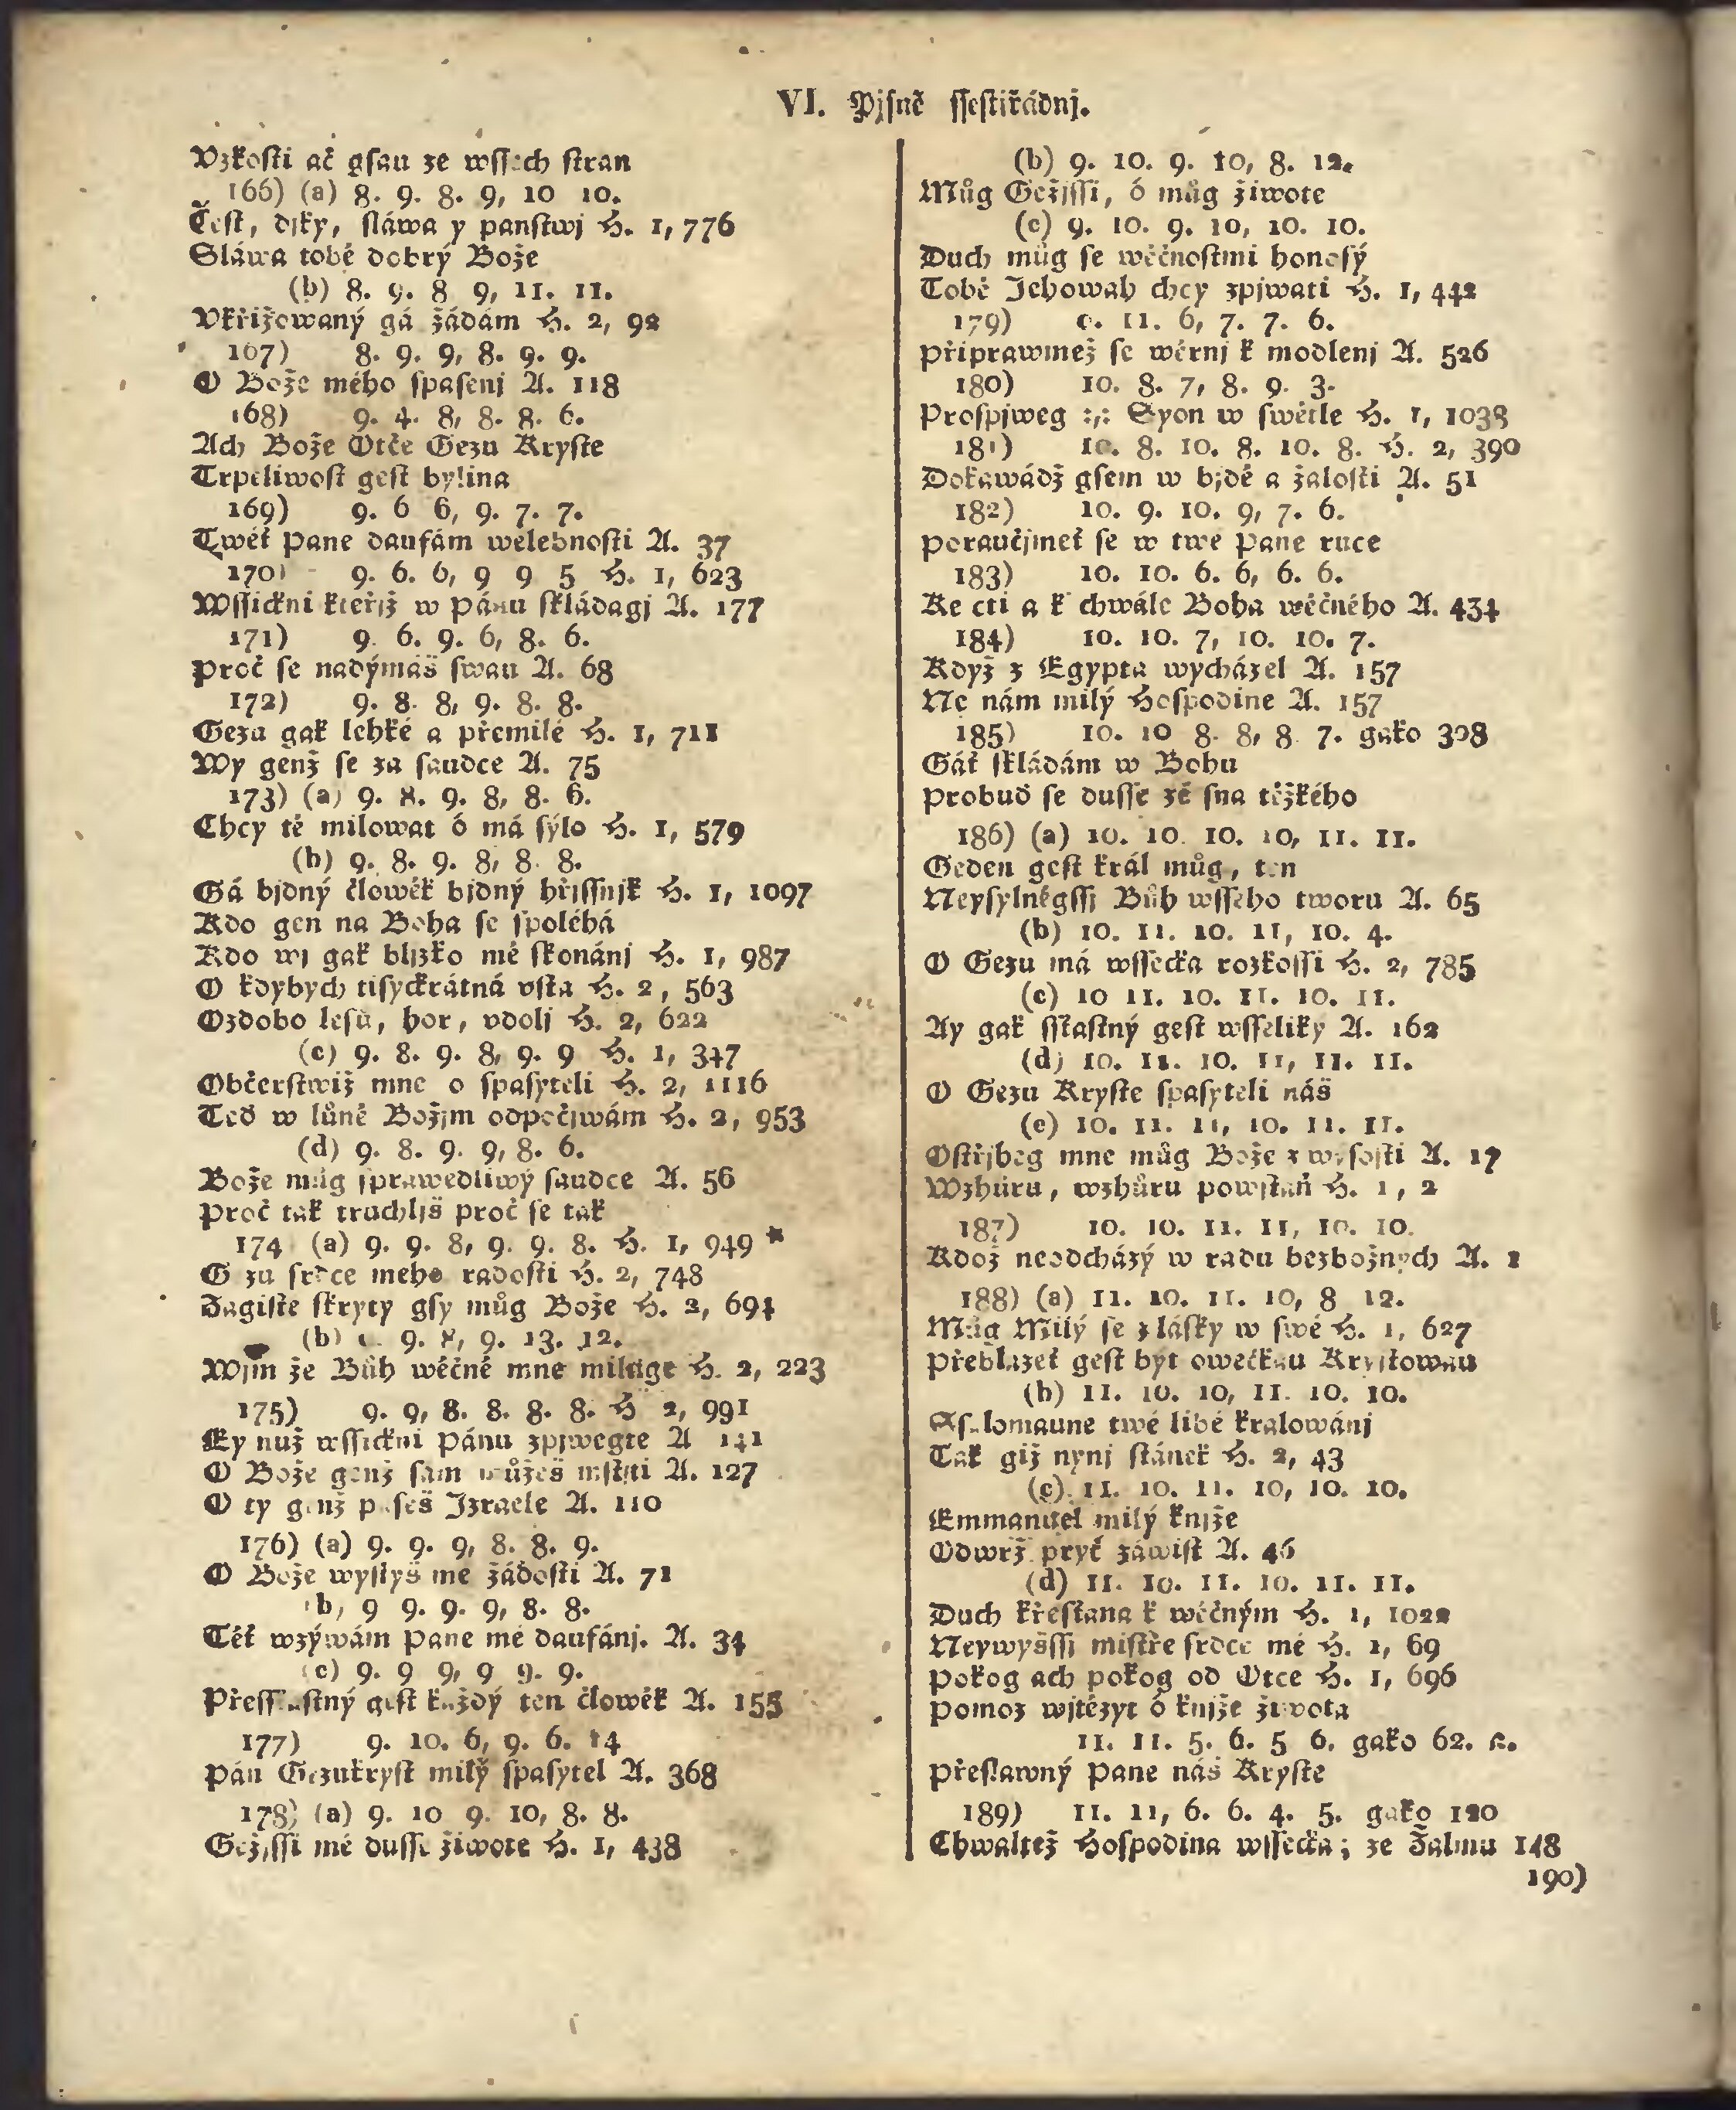 VI. Pjsně ssestiřádnj.
Vzkosti ač gsau ze wssech stran
166) (a) 8. 9. 8. 9, 10 10.
Čest, djky, sláwa y panstwj H. 1, 776
Sláwa tobě dobrý Bože
(b) 8. 9. 8 9, 11. 11.
Vkřižowaný gá žádám H. 2, 92
167) 8. 9. 9, 8. 9. 9.
O Bože mého spasenj A. 118
168) 9. 4. 8, 8. 8. 6.
Ach Bože Otče Gezu Kryste
Trpěliwost gest bylina
169) 9. 6 6, 9. 7. 7.
Twéť Pane daufám welebnosti A. 37
170) 9. 6. 6, 9 9 5 H. 1, 623
Wssickni kteřjž w Pánu skládagj A. 177
171) 9. 6. 9. 6, 8. 6.
Proč se nadýmáš swau A. 68
172) 9. 8. 8, 9. 8. 8.
Gezu gak lehké a přemilé H. 1, 711
Wy genž se za saudce A. 75
173) (a) 9. 8. 9. 8, 8. 6.
Chcy tě milowat ó má sýlo H. 1, 579
(b) 9. 8. 9. 8, 8. 8.
Gá bjdný člowěk bjdný hřjssnjk H. 1, 1097
Kdo gen na Boha se spoléhá
Kdo wj gak bljzko mé skonánj H. 1, 987
O kdybych tisyckrátná vsta H. 2, 563
Ozdobo lesů, hor, vdolj H. 2, 622
(c) 9. 8. 9. 8, 9. 9 H. 1, 347
Občerstwiž mne o spasyteli H. 2, 1116
Teď w lůně Božjm odpočjwám H. 2, 953
(d) 9. 8. 9. 9, 8. 6.
Bože můg sprawedliwý saudce A. 56
Proč tak truchljš proč se tak
174 (a) 9. 9. 8, 9. 9. 8. H. 1, 949 *
G zu srdce meho radosti H. 2, 748
Jagiste skryty gsy můg Bože H. 2, 694
(b) 9. 8, 9. 13. 12.
Wjm že Bůh wěčně mne miluge H. 2, 223
175) 9. 9, 8. 8. 8. 8. H 2, 991
Ey nuž wssickni Pánu zpjwegte A 141
O Bože genž sám můžeš mstjti A. 127
O ty genž paseš Izraele A. 110
176) (a) 9. 9. 9, 8. 8. 9.
O Bože wyslyš mé žádosti A. 71
(b) 9 9. 9. 9, 8. 8.
Těť wzýwám Pane mé daufánj. A. 34
(c) 9. 9 9, 9 9. 9.
Přessťastný gest každý ten člowěk A. 155
177) 9. 10. 6, 9. 6. 14
Pán Gezukryst milý spasytel A. 368
178) (a) 9. 10 9. 10, 8. 8.
Gežjssi mé dusse žiwote H. 1, 438
(b) 9. 10. 9. 10, 8. 12.
Můg Gežjssi, ó můg žiwote
(c) 9. 10. 9. 10, 10. 10.
Duch můg se wěčnostmi honosý
Tobě Jehowah chcy zpjwati H. 1, 442
179) 11. 6, 7. 7. 6.
Připrawmež se wěrnj k modlenj A. 526
180) 10. 8. 7, 8. 9. 3.
Prospjweg :,: Syon w swětle H. 1, 1038
181) 10. 8. 10. 8. 10. 8. H. 2, 390
Dokawádž gsem w bjdě a žalosti A. 51
182) 10. 9. 10. 9, 7. 6.
Poraučjmeť se w twé Pane ruce
183) 10. 10. 6. 6, 6. 6.
Ke cti a k chwále Boha wěčného A. 434
184) 10. 10. 7, 10. 10. 7.
Když z Egypta wycházel A. 157
Ne nám milý Hospodine A. 157
185) 10. 10 8. 8, 8. 7. gako 308
Gáť skládám w Bohu
Probuď se dusse zé sna těžkého
186) (a) 10. 10. 10. 10, 11. 11.
Geden gest král můg, ten
Neysylněgssj Bůh wsseho tworu A. 65
(b) 10. 11. 10. 11, 10. 4.
O Gezu má wssecka rozkossi H. 2, 785
(c) 10 11. 10. 11. 10. 11.
Ay gak sstastný gest wsseliky A. 162
(d) 10. 11. 10. 11, 11. 11.
O Gezu Kryste spasyteli náš
(e) 10. 11. 11, 10. 11. 11.
Ostřjheg mne můg Bože z wysosti A. 17
Wzhůru, wzhůru powstaň H. 1, 2
187) 10. 10. 11. 11, 10. 10.
Kdož neodcházý w radu bezbožných A. 1
188) (a) 11. 10. 11. 10, 8 12.
Můg Milý se z lásky w swé H. 1, 627
Přeblazeť gest být owečkau Krystowau
(b) 11. 10. 10, 11. 10. 10.
Ssalomaune twé libé kralowánj
Tak giž nynj stánek H. 2, 43
(c) 11. 10. 11. 10, 10. 10.
Emmanuel milý knjže
Odwrž pryč záwist A. 46
(d) 11. 10. 11. 10. 11. 11.
Duch křestana k wěčným H. 1, 1022
Neywyšssi mistře srdce mé H. 1, 69
Pokog ach pokog od Otce H. 1, 696
Pomoz wjtězyt ó knjže žiwota
11. 11. 5. 6. 5 6. gako 62. a.
Přeslawný Pane náš Kryste
189) 11. 11, 6. 6. 4. 5. gako 120
Chwaltež Hospodina wssecka; ze Žalmu 148
190)